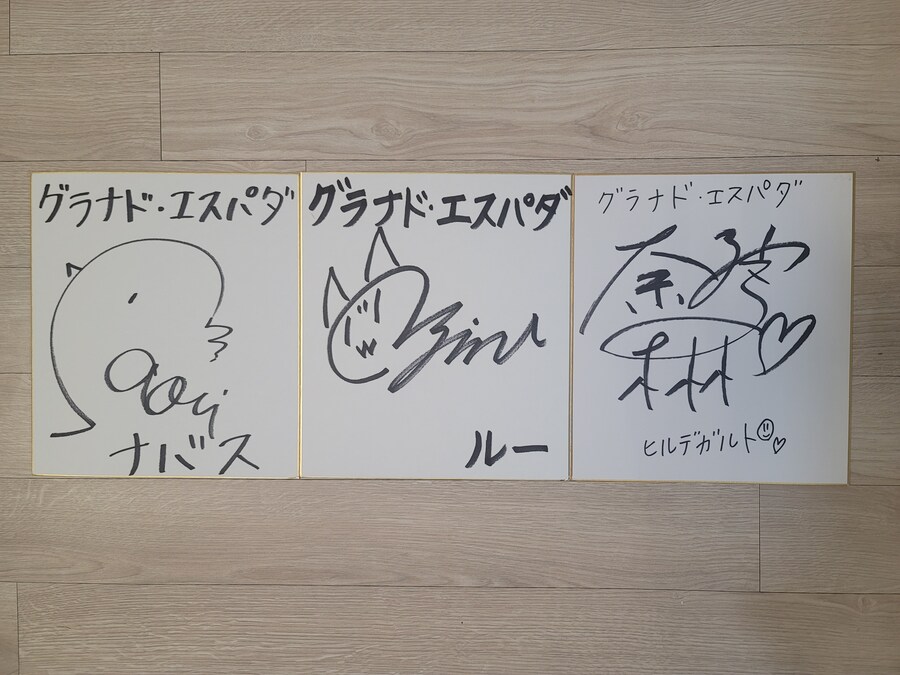 グラナド・エスパダ
ナバス
グラナド・エスパダ
ルー
グラナド・エスパダ
ヒルデガルト